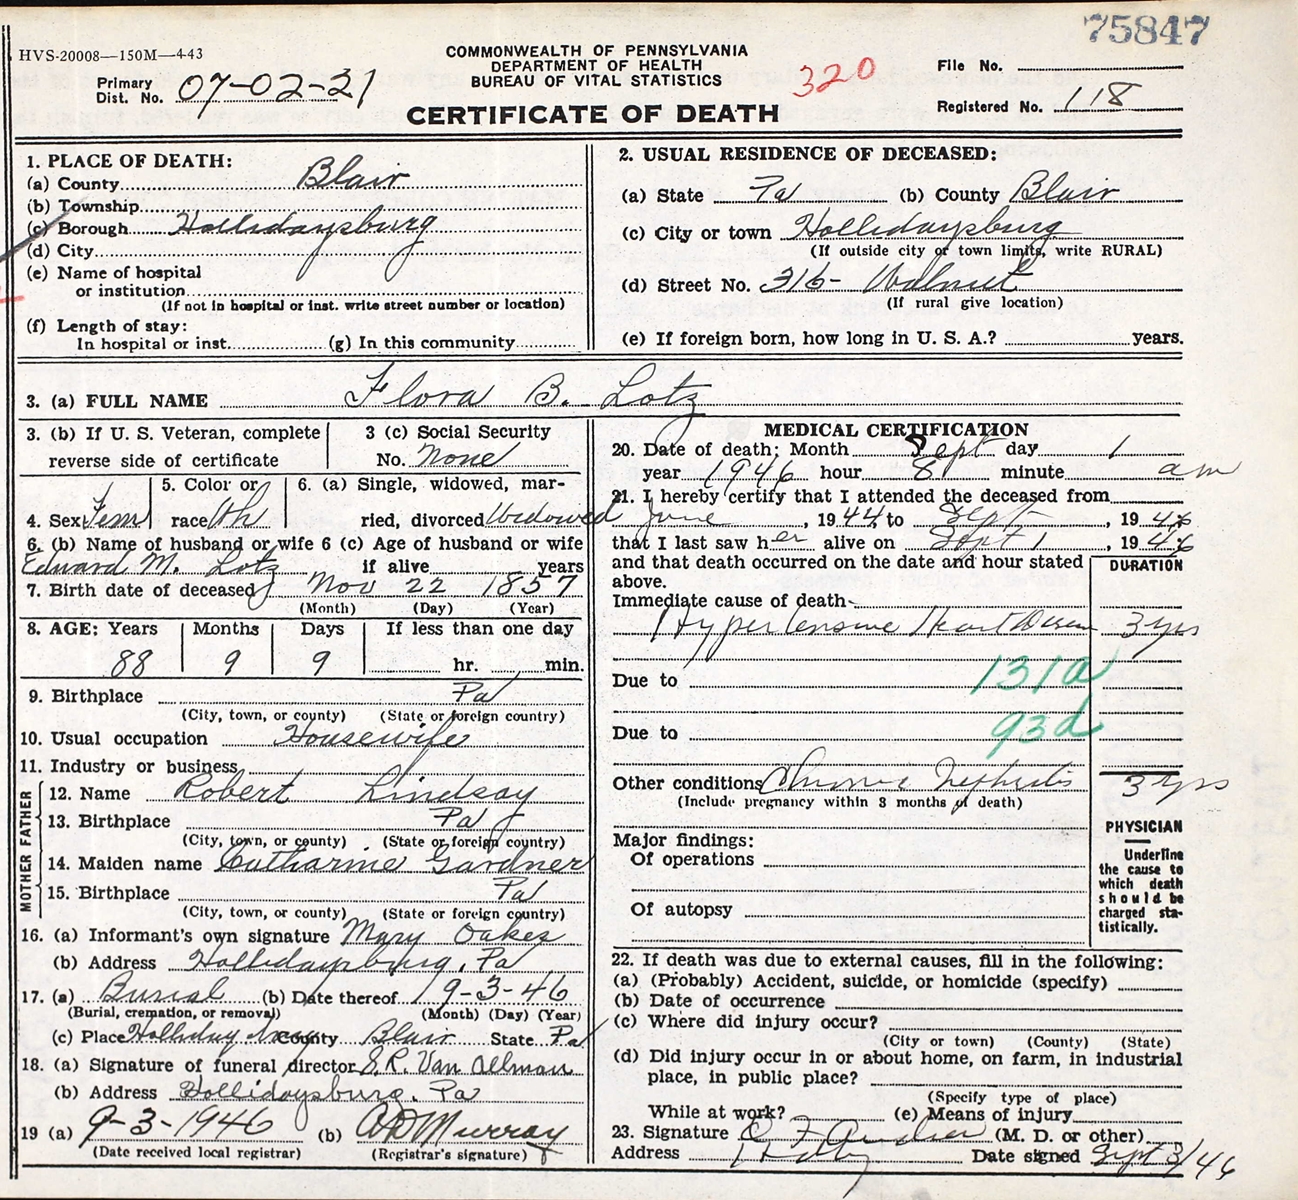 75847
HVS-20008—150M—4-43
COMMONWEALTH OF PENNSYLVANIA
DEPARTMENT OF HEALTH
BUREAU OF VITAL STATISTICS
CERTIFICATE OF DEATH
Primary
Dist. No. 07-02-21
320
File No.
Registered No. 118
1. PLACE OF DEATH:
(a) County Blair
(b) Township
(c) Borough Hollidaysburg
(d) City
(e) Name of hospital
or institution
(If not in hospital or inst. write street number or location)
(f) Length of stay:
In hospital or inst. (g) In this community
2. USUAL RESIDENCE OF DECEASED:
(a) State Pa (b) County Blair
(c) City or town Hollidaysburg
(If outside city or town limits, write RURAL)
(d) Street No. 316- Walnut
(If rural give location)
(e) If foreign born, how long in U. S. A.? years.
3. (a) FULL NAME Flora B. Lotz
3. (b) If U. S. Veteran, complete
reverse side of certificate
3 (c) Social Security
No. None
4. Sex Fem
5. Color or
race Wh
6. (a) Single, widowed, mar-
ried, divorced Widowed
6. (b) Name of husband or wife
Edward M. Lotz
6 (c) Age of husband or wife
if alive years
7. Birth date of deceased Nov 22 1857
(Month) (Day) (Year)
8. AGE: Years Months Days If less than one day
88 9 9 hr. min.
9. Birthplace Pa
(City, town, or county) (State or foreign country)
10. Usual occupation Housewife
11. Industry or business
FATHER
12. Name Robert Lindsay
13. Birthplace Pa
(City, town, or county) (State or foreign country)
MOTHER
14. Maiden name Catharine Gardner
15. Birthplace Pa
(City, town, or county) (State or foreign country)
16. (a) Informant's own signature Mary Oakes
(b) Address Hollidaysburg, Pa
17. (a) Burial (b) Date thereof 9-3-46
(Burial, cremation, or removal) (Month) (Day) (Year)
(c) Place Holliday County Blair State Pa
18. (a) Signature of funeral director S.R. Van Allman
(b) Address Hollidaysburg, Pa
19 (a) 9-3-1946 (b) Murray
(Date received local registrar) (Registrar's signature)
MEDICAL CERTIFICATION
20. Date of death: Month Sept day 1
year 1946 hour 8 minute am
21. I hereby certify that I attended the deceased from
June, 1944, to Sept, 1946
that I last saw her alive on Sept 1, 1946
and that death occurred on the date and hour stated
above.
DURATION
Immediate cause of death
Hypertensive Heart Disease 3 yrs
Due to 131a
Due to 93d
Other conditions Chronic Nephritis 3 yrs
(Include pregnancy within 3 months of death)
Major findings:
Of operations
Of autopsy
PHYSICIAN
Underline
the cause to
which death
should be
charged sta-
tistically.
22. If death was due to external causes, fill in the following:
(a) (Probably) Accident, suicide, or homicide (specify)
(b) Date of occurrence
(c) Where did injury occur?
(City or town) (County) (State)
(d) Did injury occur in or about home, on farm, in industrial
place, in public place?
(Specify type of place)
While at work? (e) Means of injury
23. Signature (M. D. or other)
Address Date signed Sept 3/46